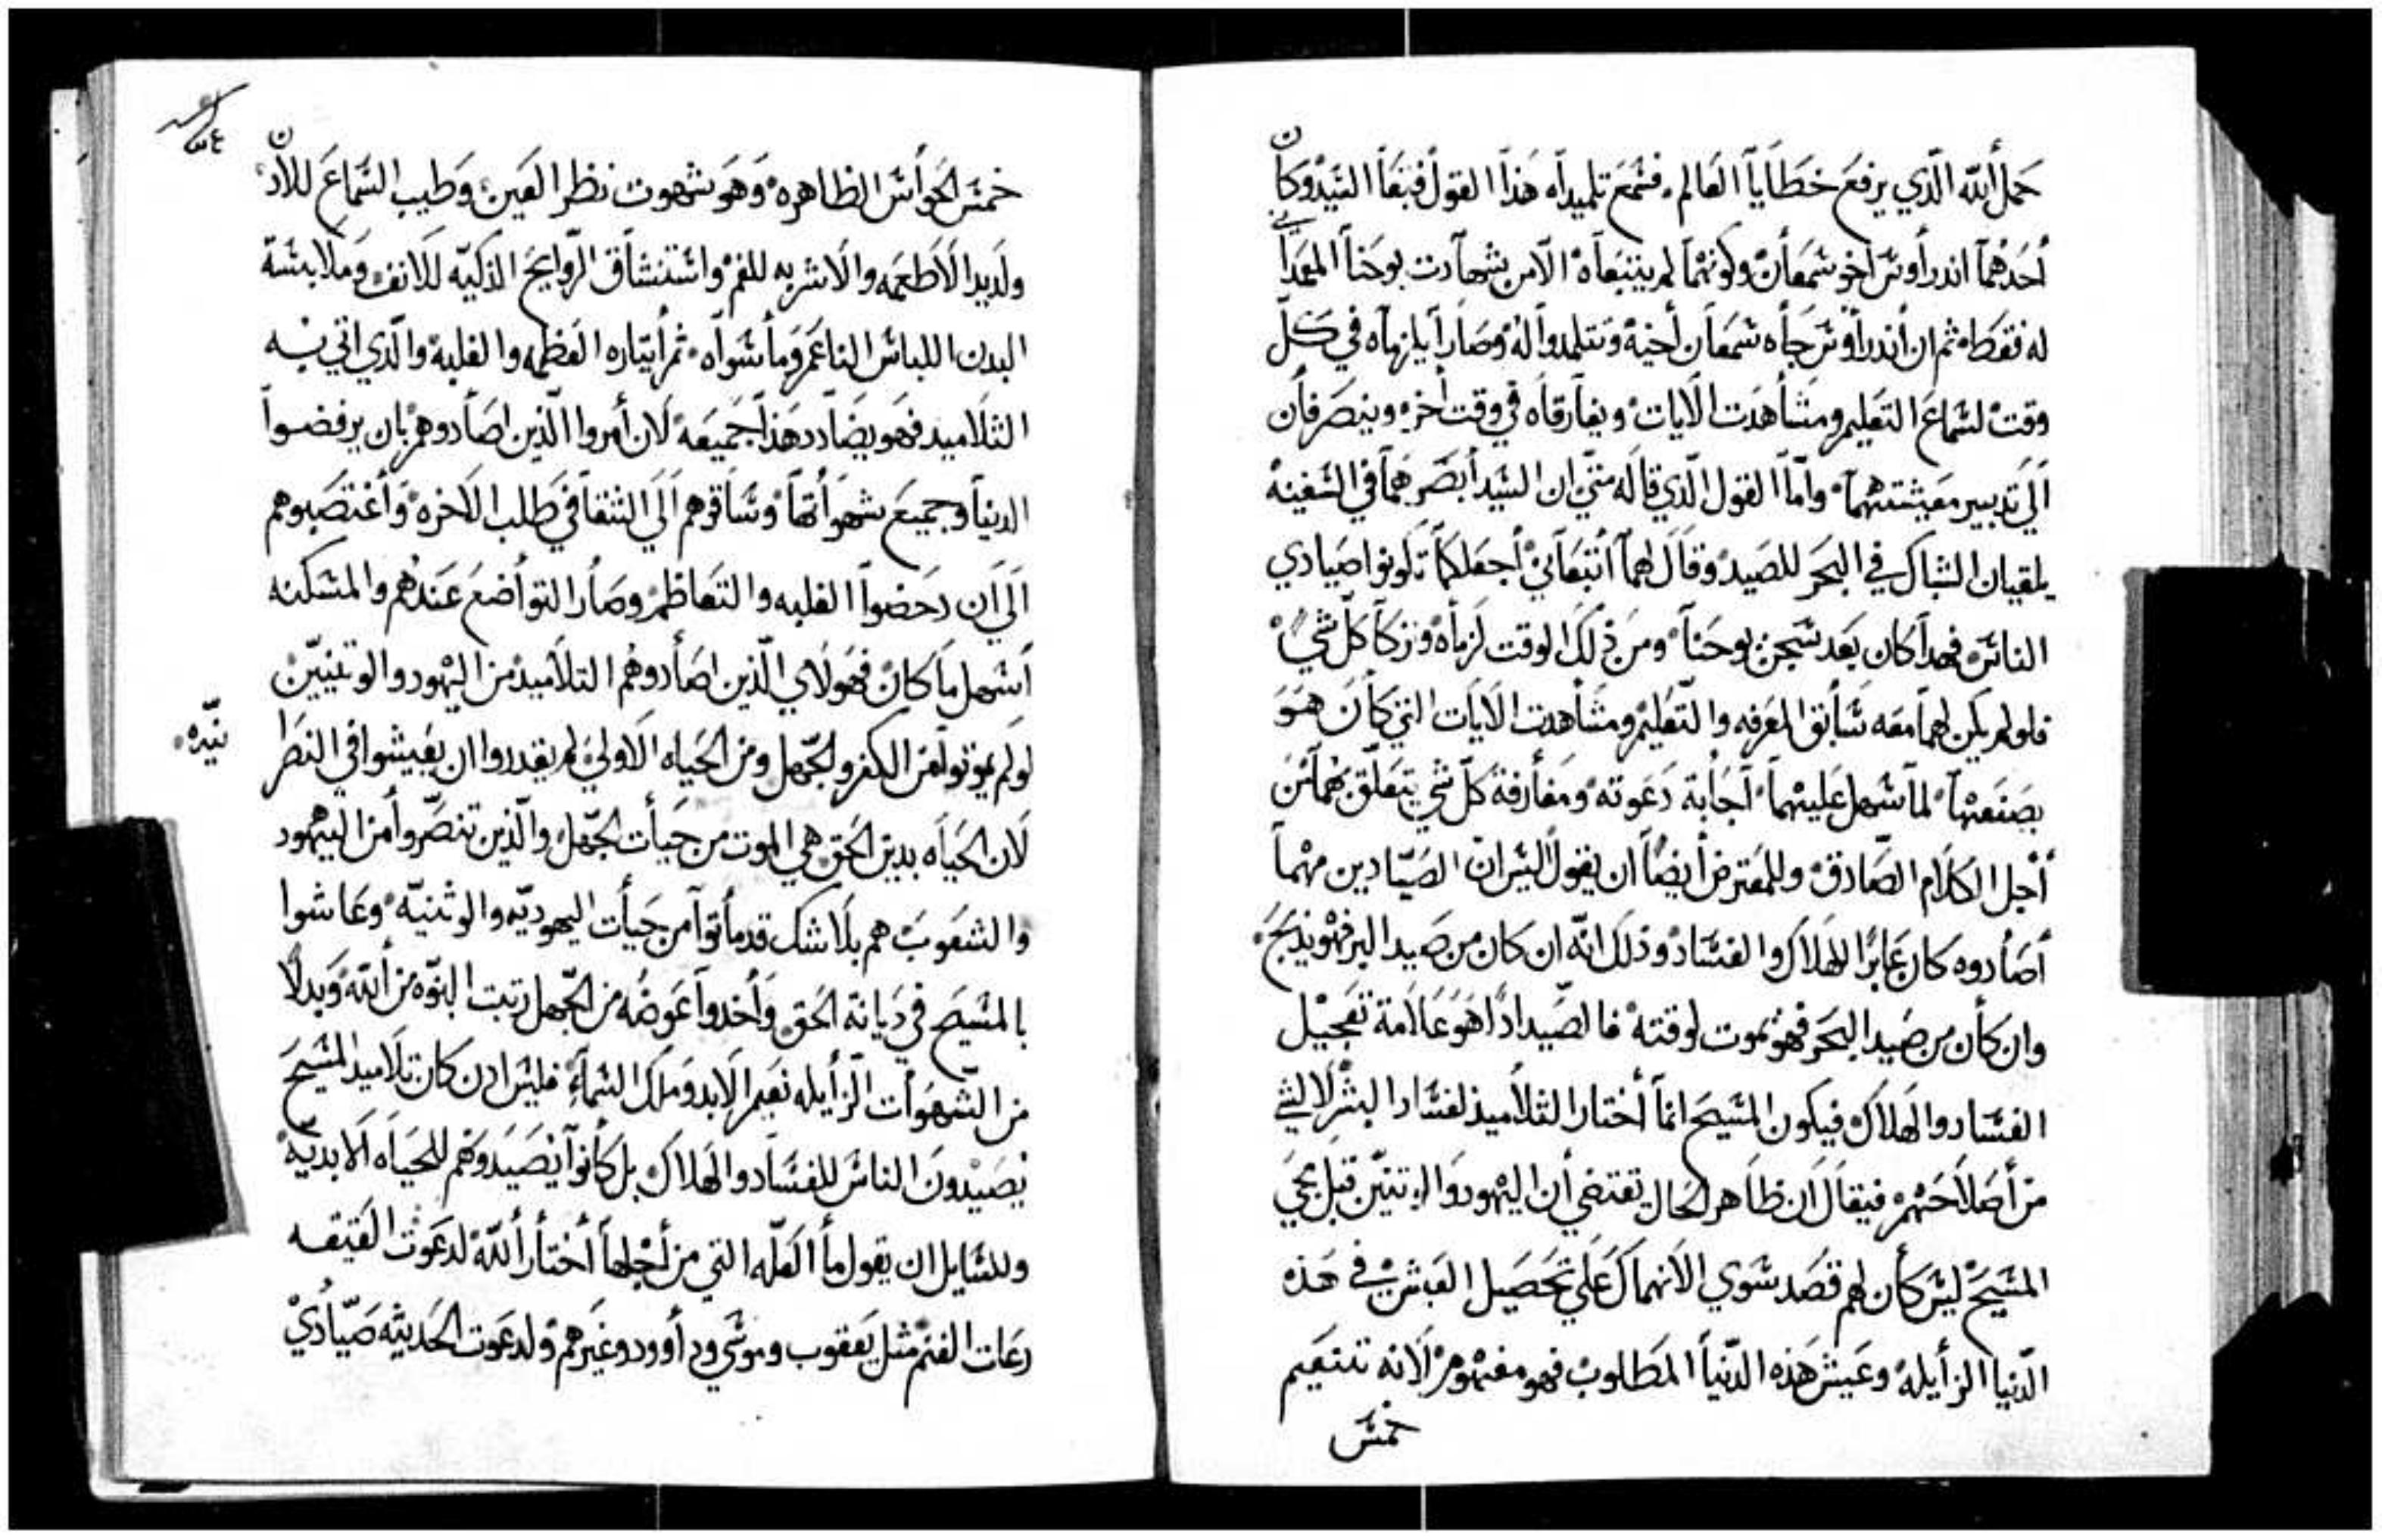 حمل الله الذي يرفع خطايا العالم فسمع تلميداه هدا القول فتبعا السيد وكان
أحدهما اندراوس اخو سمعان وكونهما لم يتبعاه الا من شهادت يوحنا المعمدان
له فقط ثم ان أندراوس جاه سمعان أخيه وتتلمدوا له وصارا يلزماه في كل
وقت لسماع التعليم ومشاهدت الايات ويفارقاه في وقت أخر وينصرفان
الي تدبير معيشتهما واما القول الذي قاله متي ان السيد أبصرهما في السفينه
يلقيان الشباك في البحر للصيد وقال لهما أتبعاني أجعلكما تكونوا صيادي
الناس فهدا كان بعد سجن يوحنا ومن ذلك الوقت لزماه وتركا كل شي
فلو لم يكن لهما معه سابق المعرفه والتعليم ومشاهدت الايات التي كان هو
يصنعها لما سهل عليهما أجابة دعوته ومفارقة كل شي يتعلق بهما من
أجل الكلام الصادق وللمعترض أيضا ان يقول اليس ان الصيادين مهما
أصادوه كان عابرا للهلاك والفساد وذلك انه ان كان من صيد البر فهو يذبح
وان كأن من صيد البحر فهو يموت لوقته فالصيد ادا هو علامة تعجيل
الفساد والهلاك فيكون المسيح انما أختار التلاميذ لفساد البشر لا لشي
من أصلاحهم فيقال ان ظاهر الحال يقتضي أن اليهود والوتنيين قبل مجي
المسيح ليس كأن لهم قصد سوي الانهماك علي تحصيل العيش في هذه
الدنيا الزأيله وعيش هذه الدنيا المطلوب فهو مفهوم لانه تنعيم
خمس
خمس الحواس الظاهره وهو شهوت نظر العين وطيب السماع للادن
ولديد الاطعمه والاشربه للفم واستنشاق الروايح الذكيه للانف وملابسة
البدن اللباس الناعم وما سواه ثم أيتاره العظمه والغلبه والذي اتي به
التلاميد فهو يضادد هذا جميعه لان أمروا الذين اصادوهم بان يرفضوا
الدنيا وجميع شهواتها وساقوهم الي الشقا في طلب الاخره وأغتصبوهم
الي ان دحضوا الغلبه والتعاظم وصار التواضع عندهم والمسكنه
أسهل ما كان فهولاي الذين اصادوهم التلاميد من اليهود والوتنيين
لو لم يموتوا من الكفر والجهل ومن الحياه الاولي لم يقدروا ان يعيشوا في النصر
نيه
لان الحياه بدين الحق هي الموت من حيأت الجهل والذين تنصروا من اليهود
والشعوب هم بلا شك قد ماتوا من حيأت اليهوديه والوثنيه وعاشوا
بالمسيح في ديانة الحق وأخدوا عوضه من الجهل رتبت البنوه من الله وبدلا
من الشهوات الزأيله نعيم الابد وملك السماء فليس ادن كان تلاميد المسيح
يصيدون الناس للفساد والهلاك بل كانوا يصيدوهم للحياه الابديه
وللسايل ان يقول ما العله التي من أجلها أختار الله لدعوت العتيقه
رعات الغنم مثل يعقوب وموسي ودأوود وغيرهم ولدعوت الحديثه صيادي